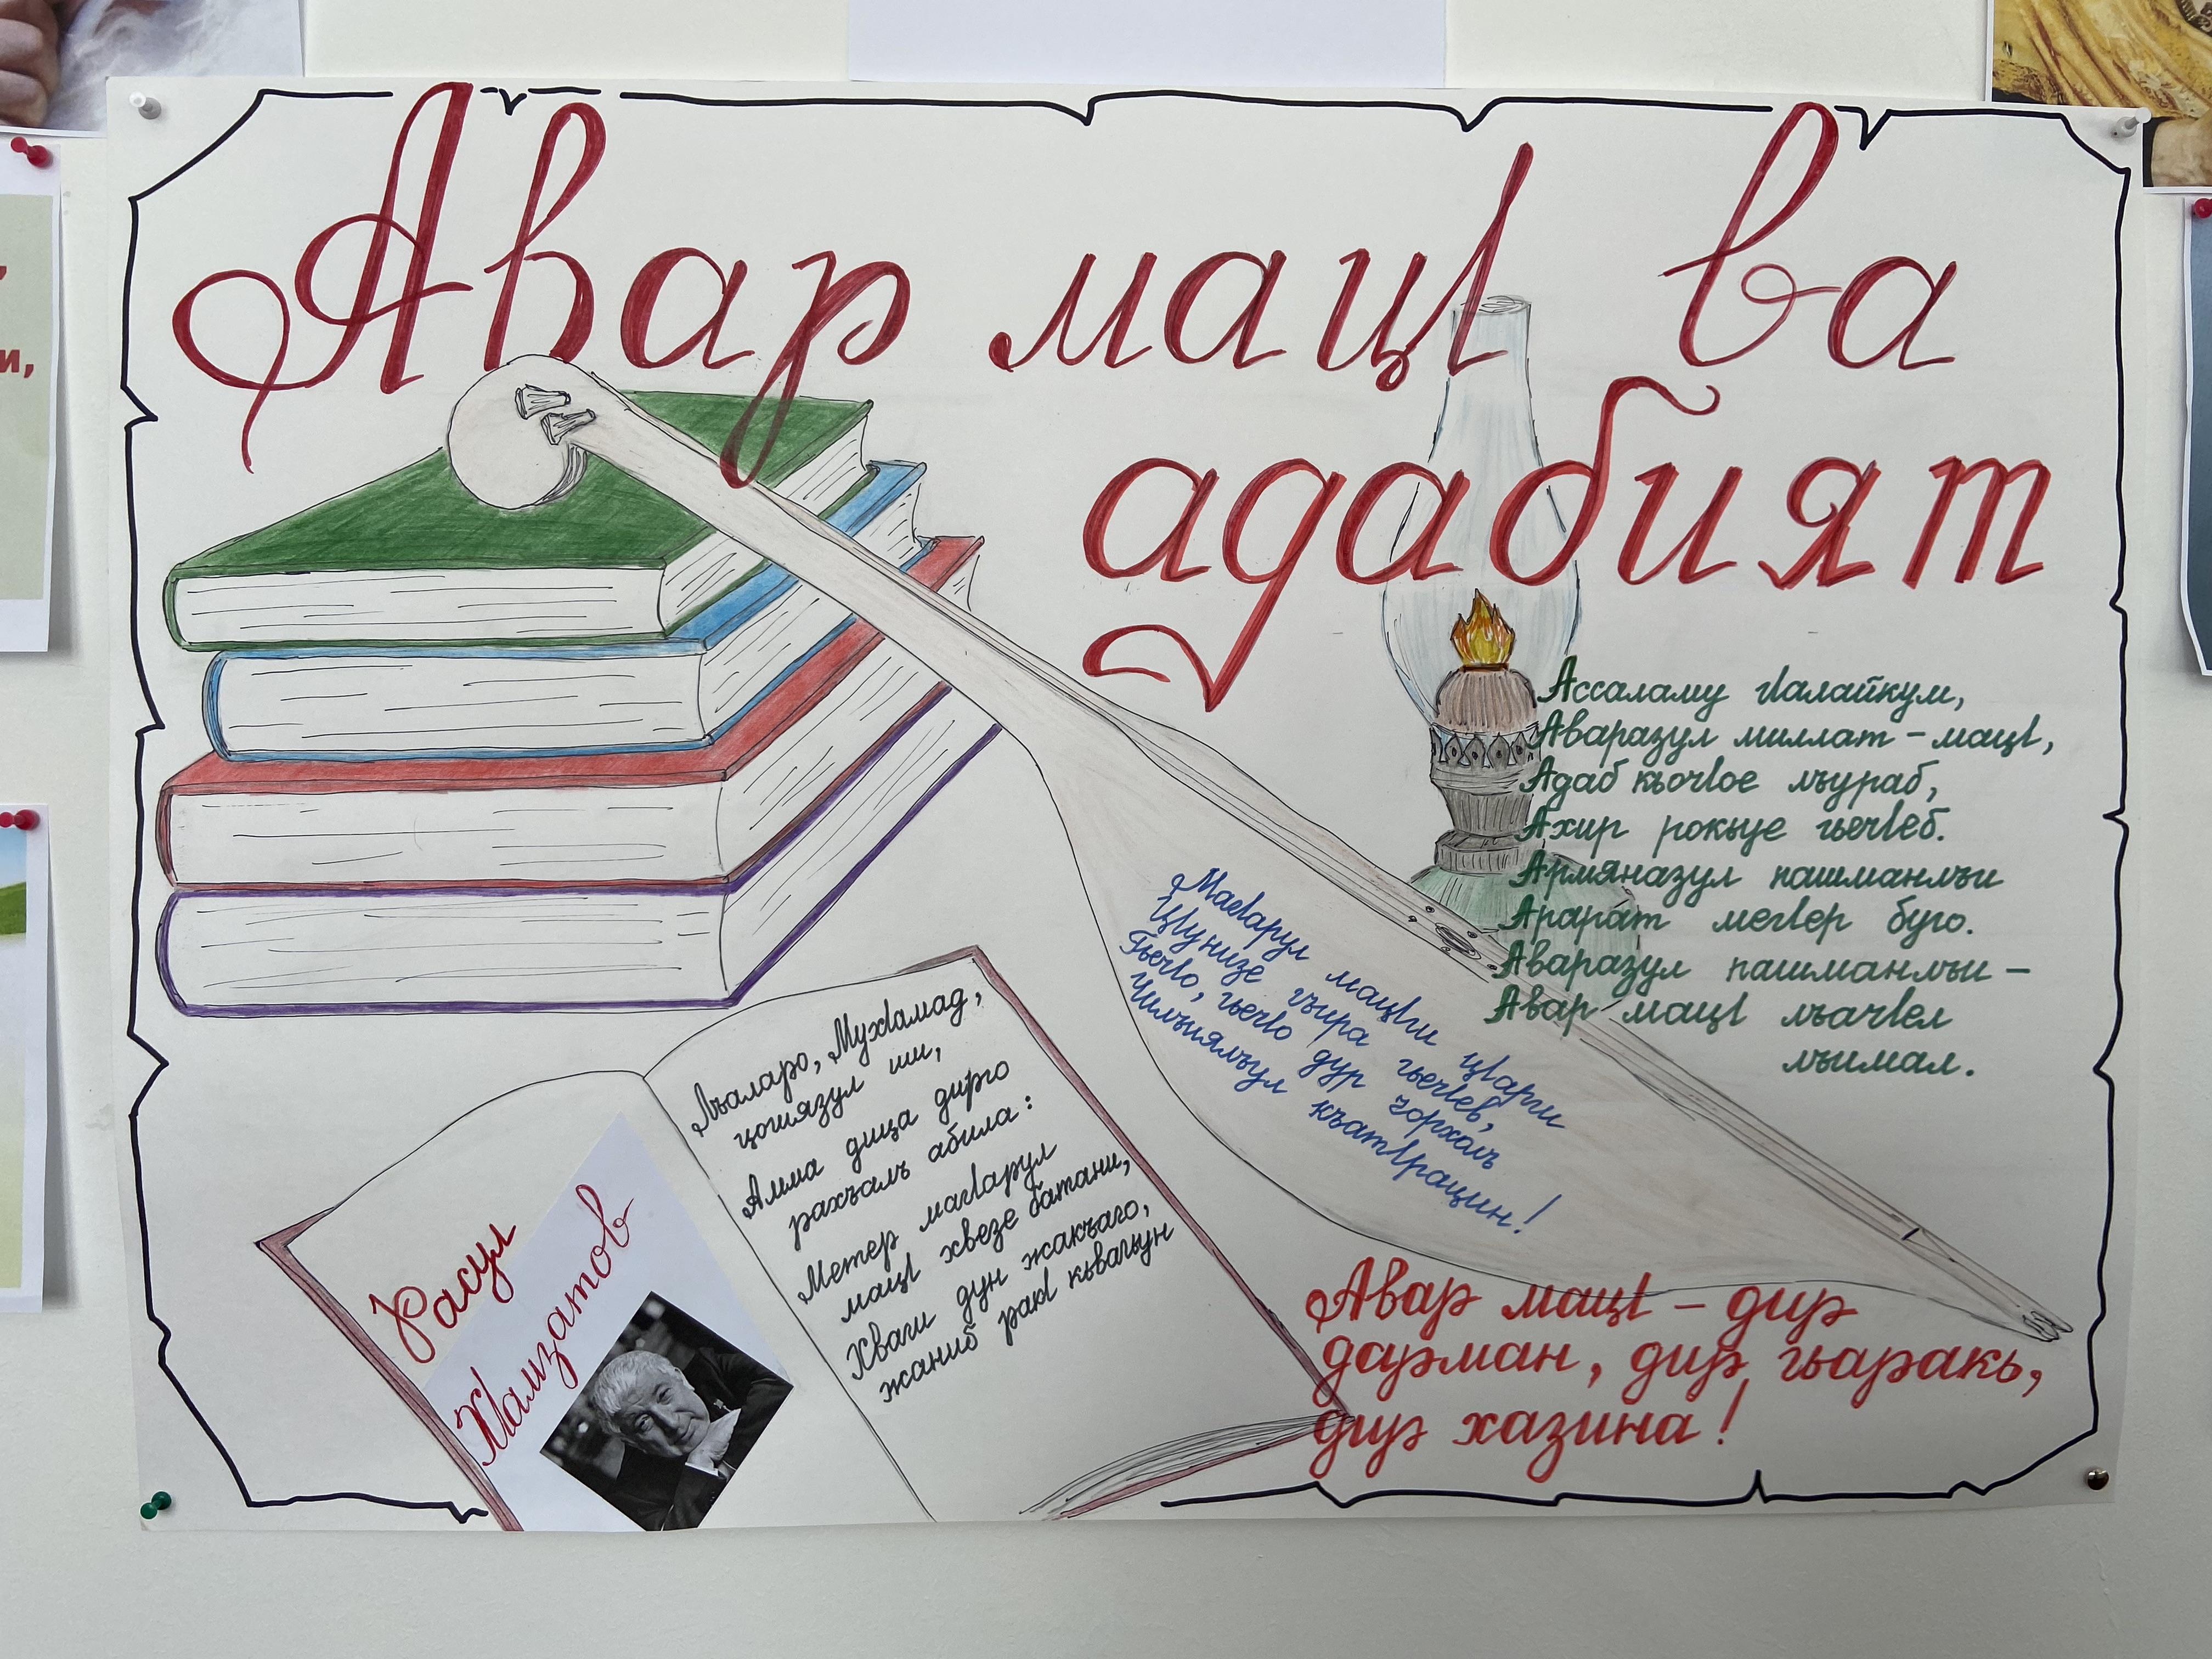 Авар мацӀ ва
адабият
Ассаламу гӀалайкум,
Аваразул миллат – мацӀ,
Адаб кьочӀое лъураб,
Ахир рокьуе гьечӀеб.
Армяназул пашманлъи
Арарат мегӀер буго.
Аваразул пашманлъи –
Авар мацӀ лъачӀел
лъимал.
МагӀарул мацӀги цӀарги
ЦӀунизе гъира гьечӀев,
ГьечӀо, гьечӀо дур чорхолъ
Чилъиялъул къатӀрацин!
Лъаларо, МухӀамад,
цогиязул ши,
Амма дица дирго
рахъалъ абила:
Метер магӀарул
мацӀ хвезе батани,
Хваги дун жакъаго,
жаниб ракӀ кьвагьун
Расул
ХӀамзатов
Авар мацӀ – дир
дарман, дир гьаракь,
дир хазина!
и,